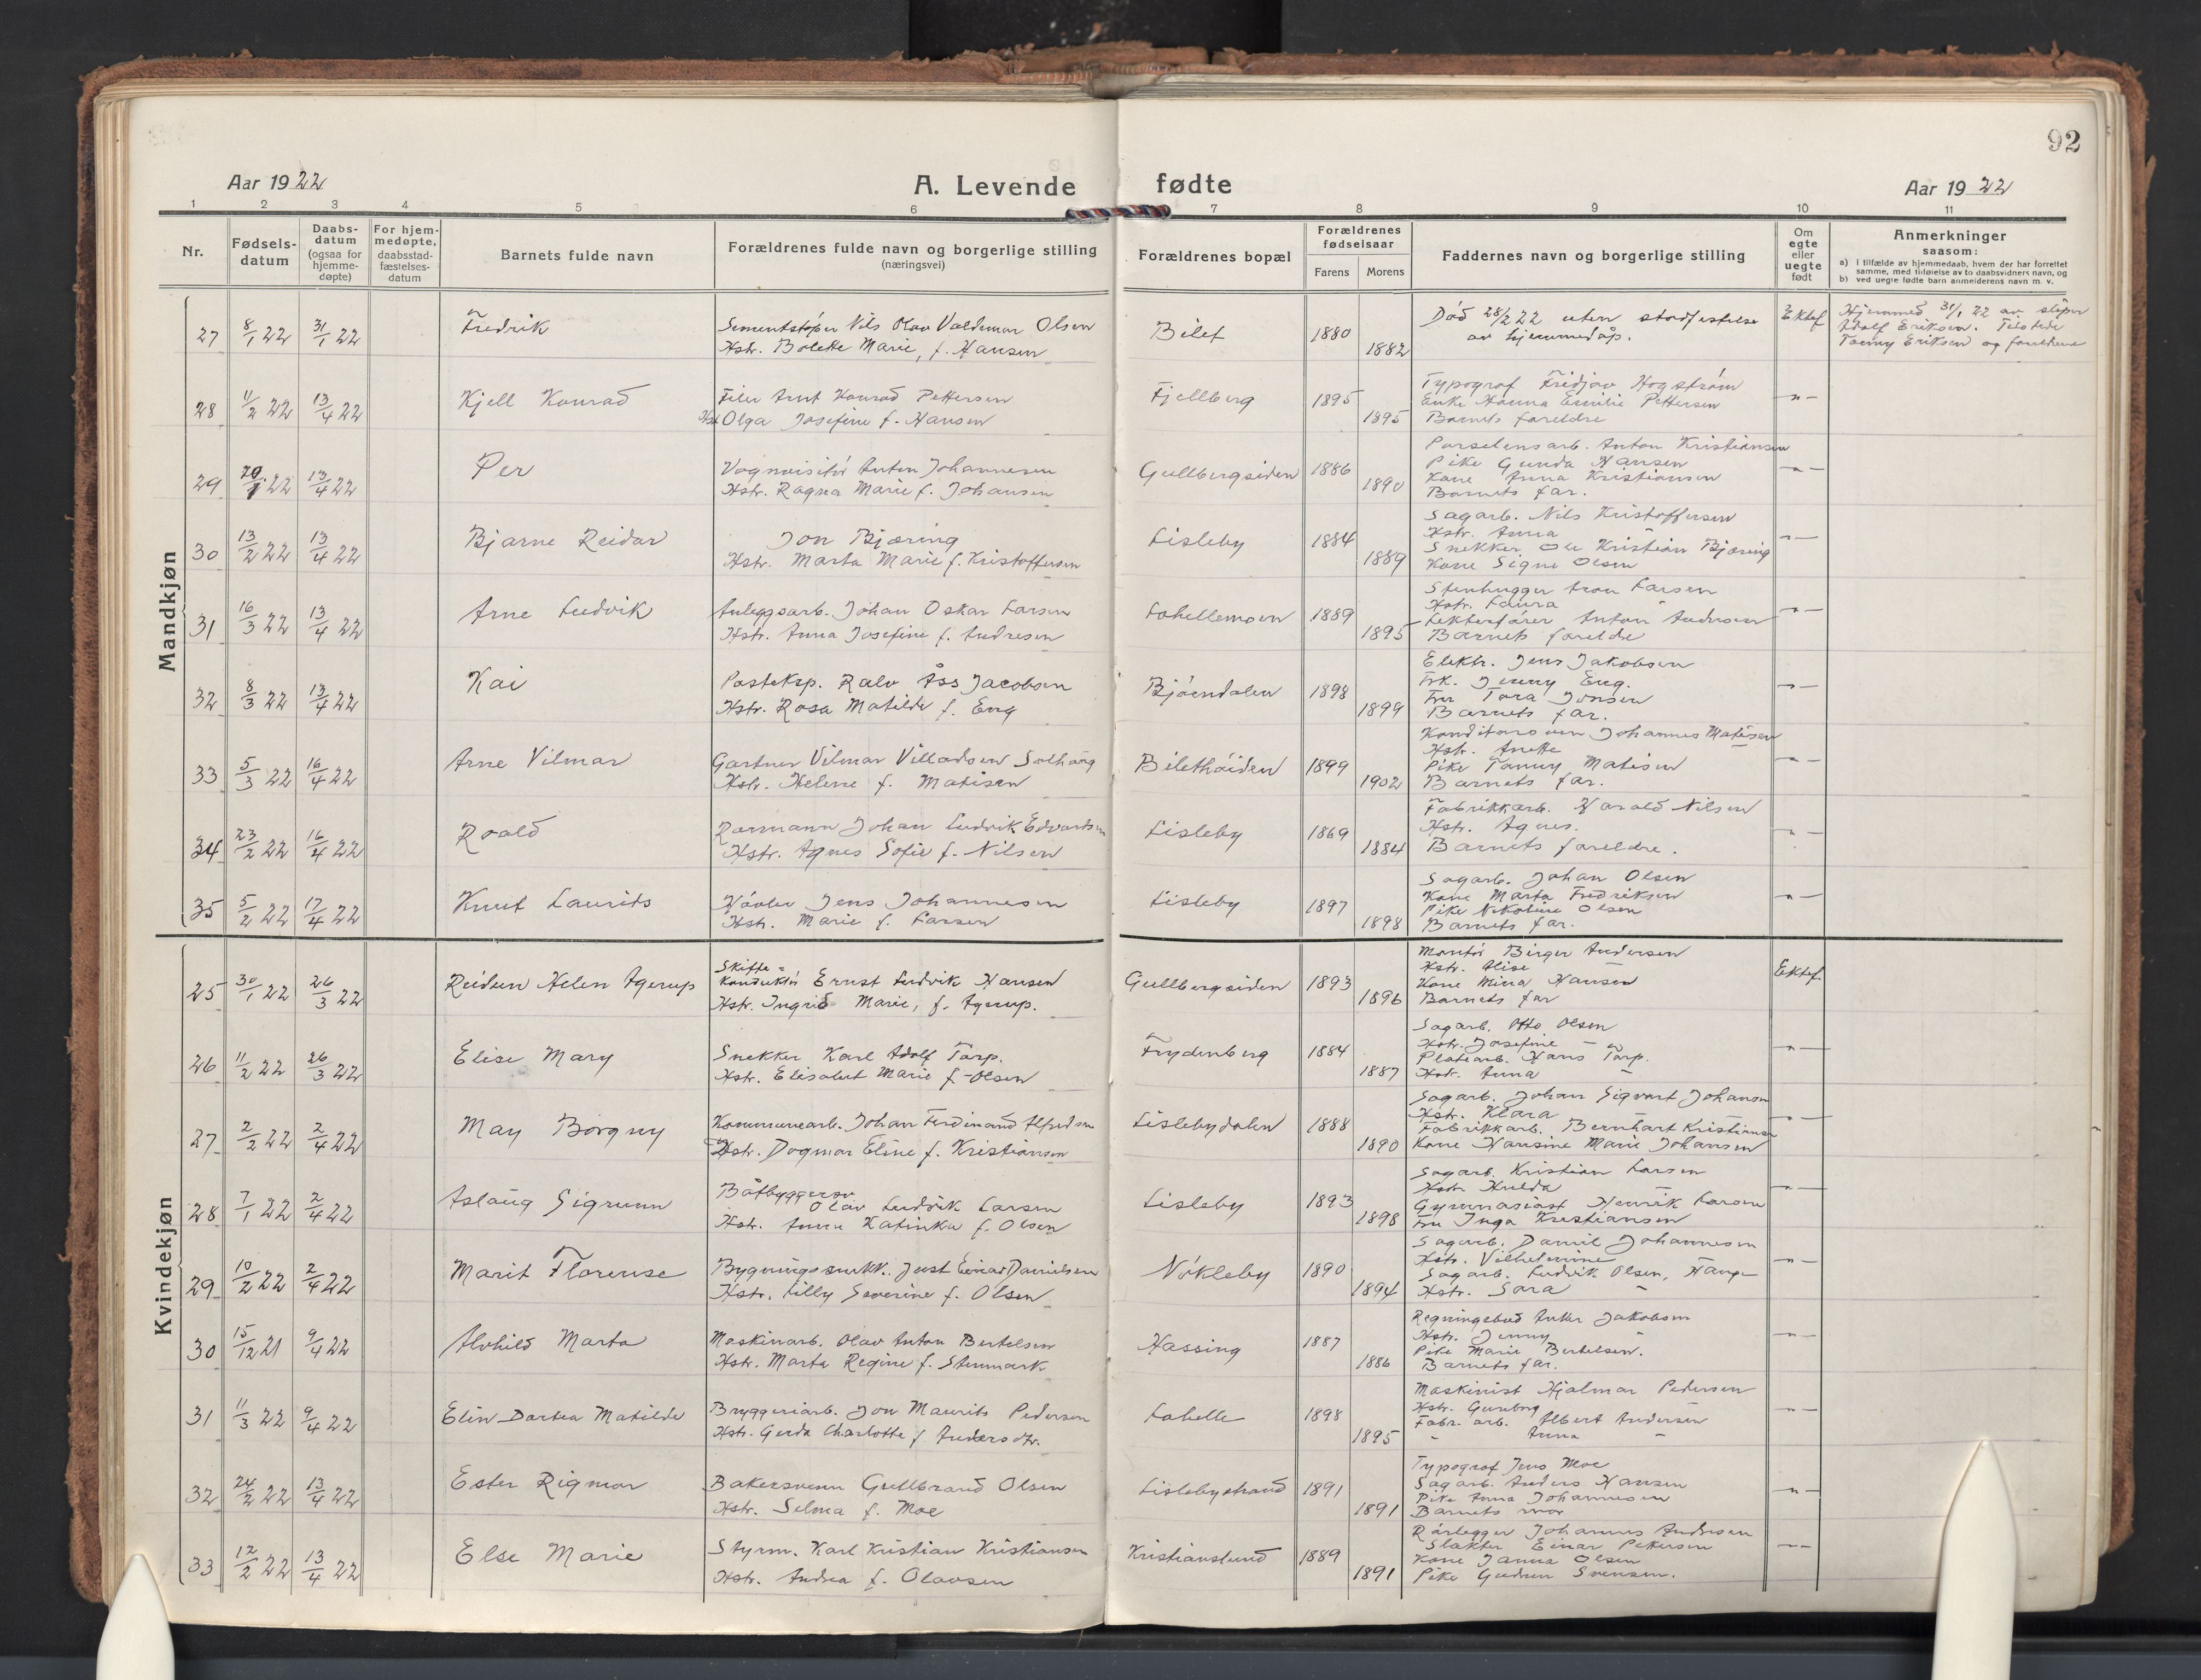 92
Aar 1922
A. Levende fødte
Aar 1922
1 2 3 4 5 6 7 8 9 10 11
Nr.
Fødsels-
datum
Daabs-
datum
(ogsaa for
hjemme-
døpte)
For hjem-
medøpte,
daabsstad-
fæstelses-
datum
Barnets fulde navn
Forældrenes fulde navn og borgerlige stilling
(næringsvei)
Forældrenes bopæl
Forældrenes
fødselsaar
Farens Morens
Faddernes navn og borgerlige stilling
Om
egte
eller
uegte
født
Anmerkninger
saasom:
a) i tilfælde av hjemmedaab, hvem der har forrettet
samme, med tilføielse av to daabsvidners navn, og
b) ved uegte fødte barn anmelderens navn m. v.
Mandkjøn
27 8/1 22 31/1 22 Fredrik
Sementstøper Nils Olav Valdemar Olsen
Hstr. Bolette Marie, f. Hansen
Bilet 1880 1882
Død 28/2 22 uten stadfestelse
av hjemmedåp.
Ektef
Hjemmed. 31/1 22 av støper
Adolf Eriksen. Tilstede
Fanny Eriksen og foreldrene
28 11/2 22 13/4 22 Kjell Konrad
Filer Arnt Konrad Pettersen
Hst. Olga Josefine f. Hansen
Fjellberg 1895 1895
Typograf Fridjov Hogstrøm
Enke Hanna Emilie Pettersen
Barnets foreldre
-"-
29 20/1 22 13/4 22 Per
Vognvisitør Anton Johannesen
Hstr. Ragna Marie f. Johansen
Gullbergsiden 1886 1890
Porselensarb. Anton Kristiansen
Pike Gunda Hansen
Kone Anna Kristiansen
Barnets far.
-"-
30 13/2 22 13/4 22 Bjarne Reidar
Jon Bjæring
Hstr. Marta Marie f. Kristoffersen
Lisleby 1884 1889
Sagarb. Nils Kristoffersen
Hstr. Anna
Snekker Ole Kristian Bjæring
Kone Signe Olsen
-"-
31 16/3 22 13/4 22 Arne Ludvik
Anleggsarb. Johan Oskar Larsen
Hstr. Anna Josefine f. Andresen
Lahellemoen 1889 1895
Stenhugger Larsen
Hstr. Laura
Lekterfører Anton Andersen
Barnets foreldre
-"-
32 8/3 22 13/4 22 Kai
Posteksp. Ralv Åss Jacobsen
Hstr. Rosa Matilde f. Eng
Bjørndalen 1898 1899
Elektr. Jens Jakobsen
Frk. Jenny Eng.
Fru Tora Jonsen
Barnets far.
-"-
33 5/3 22 16/4 22 Arne Vilmar
Gartner Vilmar Villadsen Solhaug
Hstr. Helene f. Matisen
Bilethøiden 1899 1902
Konditorsven Johannes Matisen
Hstr. Anette
Pike Fanny Matisen
Barnets far.
-"-
34 23/2 22 16/4 22 Roald
Rormann Johan Ludvik Edvardsen
Hstr. Agnes Sofie f. Nilsen
Lisleby 1869 1884
Fabrikkarb. Harald Nilsen
Hstr. Agnes.
Barnets foreldre.
-"-
35 5/2 22 17/4 22 Knut Laurits
Høvler Jens Johannesen
Hstr. Marie f. Larsen
Lisleby 1897 1898
Sagarb. Johan Olsen
Kone Marta Fredriksen
Pike Nikoline Olsen
Barnets far.
-"-
Kvindekjøn
25 30/1 22 26/3 22 Reidun Helen Agerup
Skifte=
konduktør Ernst Ludvik Hansen
Hstr. Ingrid Marie, f. Agerup.
Gullbergsiden 1893 1896
Montør Birger Andersen
Hstr. Alise
Kone Mina Hansen
Barnets far
Ektef.
26 11/2 22 26/3 22 Elise Mary
Snekker Karl Adolf Tarp.
Hstr. Elisabet Marie f. Olsen
Frydenberg 1884 1887
Sagarb. Otto Olsen
Hstr. Josefine
Platearb. Hans Tarp.
Hstr. Anna
-"-
27 2/2 22 2/4 22 May Borgny
Kommunearb. Johan Ferdinand Alfredsen
Hstr. Dagmar Eline f. Kristiansen
Lislebydalen 1888 1890
Sagarb. Johan Sigvart Johansen
Hstr. Klara
Fabrikkarb. Bernhart Kristiansen
Kone Hansine Marie Johansen
-"-
28 7/1 22 2/4 22 Aslaug Sigrunn
Båtbyggersv.
Olav Ludvik Larsen
Hstr. Anna Katinka f. Olsen
Lisleby 1893 1898
Sagarb. Kristian Larsen
Hstr Hulda
Gymnasiast Henrik Larsen
Fru Inga Kristiansen
-"-
29 10/2 22 2/4 22 Marit Florense
Bygningssnekk. Just Einar Danielsen
Hstr. Lilly Severine f. Olsen
Nøkleby 1890 1894
Sagarb. Daniel Johannesen
Hstr. Vilhelmine
Sagarb. Ludvik Olsen, Haug
Hstr. Sara
-"-
30 15/12 21 9/4 22 Alvhild Marta
Maskinarb. Olav Anton Bertelsen
Hstr. Marta Regine f. Stenmark
Hassing 1887 1886
Regningsbud Anker Jakobsen
Hstr. Jenny
Pike Marie Bertelsen.
Barnets far.
-"-
31 11/3 22 9/4 22 Elin Dortea Matilde
Bryggeriarb. Jon Maurits Pedersen
Hstr. Gerda Charlotte f. Andersdtr.
Lahelle 1898 1895
Maskinist Hjalmar Pedersen
Hstr. Gunborg
Fabr. arb. Albert Andersen
" Anna "
-"-
32 24/2 22 13/4 22 Ester Rigmor
Bakersvenn Gullbrand Olsen
Hstr. Selma f. Moe
Lislebystrand 1891 1891
Typograf Jens Moe
Sagarb. Anders Hansen
Pike Anna Johannesen
Barnets mor
-"-
33 12/2 22 13/4 22 Else Marie
Styrm. Karl Kristian Kristiansen
Hstr. Andrea f. Olavsen
Kristianslund 1889 1891
Rørlegger Johannes Andresen
Slakter Einar Pettersen
Kone Janna Olsen
Pike Gudrun Svensen.
-"-